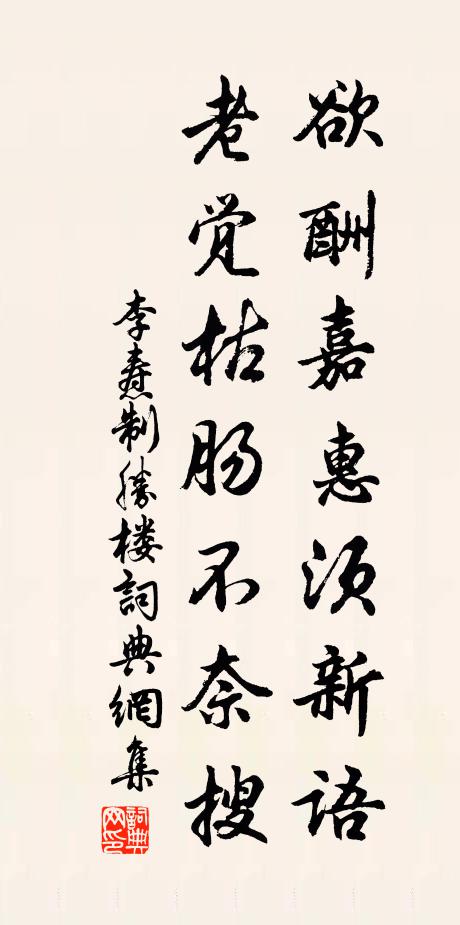 欲酬嘉惠须新语
老觉枯肠不奈搜
李焘制胜楼詞典網集
詞典网印